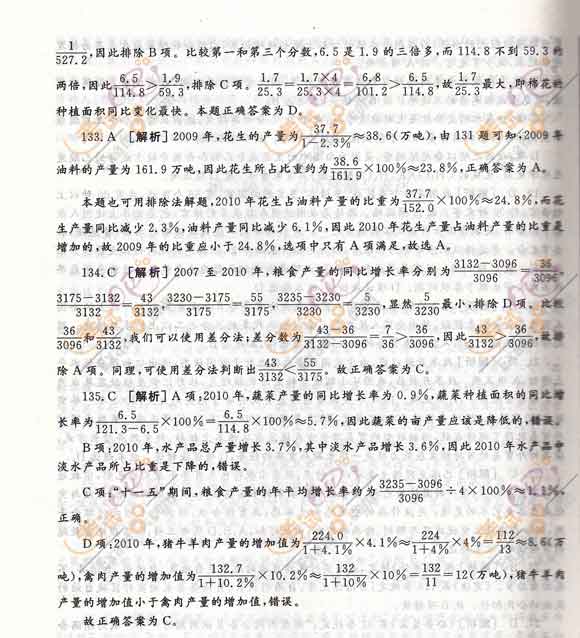 1/527.2,因此排除B项。比较第一和第三个分数,6.5是1.9的三倍多,而114.8不到59.3的
两倍,因此6.5/114.8>1.9/59.3,排除C项。1.7/25.3=1.7×4/25.3×4=6.8/101.2>6.5/114.8,故1.7/25.3最大,即棉花的
种植面积同比变化最快。本题正确答案为D。
133.A [解析]2009年,花生的产量为37.7/1-2.3%≈38.6(万吨),由131题可知,2009年
油料的产量为161.9万吨,因此花生所占比重约为38.6/161.9×100%≈23.8%,正确答案为A。
本题也可用排除法解题,2010年花生占油料产量的比重为37.7/152.0×100%≈24.8%,而花
生产量同比减少2.3%,油料产量同比减少6.1%,因此2010年花生产量占油料产量的比重是
增加的,故2009年的比重应小于24.8%,选项中只有A项满足,故选A。
134.C [解析]2007至2010年,粮食产量的同比增长率分别为3132-3096/3096=36/3096,
3175-3132/3132=43/3132,3230-3175/3175=55/3175,3235-3230/3230=5/3230,显然5/3230最小,排除D项。比较
36/3096和43/3132,我们可以使用差分法;差分数为43-36/3132-3096=7/36>36/3096,因此43/3132>36/3096,故排
除A项。同理,可使用差分法判断出43/3132<55/3175。故正确答案为C。
135.C [解析]A项:2010年,蔬菜产量的同比增长率为0.9%,蔬菜种植面积的同比增
长率为6.5/121.3-6.5×100%=6.5/114.8×100%≈5.7%,因此蔬菜的亩产量应该是降低的,错误。
B项:2010年,水产品总产量增长3.7%,其中淡水产品增长3.6%,因此2010年水产品中
淡水产品所占比重是下降的,错误。
C项:“十一五”期间,粮食产量的年平均增长率约为3235-3096/3096÷4×100%≈1.1%,
正确。
D项:2010年,猪牛羊肉产量的增加值为224.0/1+4.1%×4.1%≈224/1+4%×4%=112/13≈8.6(万
吨),禽肉产量的增加值为132.7/1+10.2%×10.2%≈132/1+10%×10%=132/11=12(万吨),猪牛羊肉
产量的增加值小于禽肉产量的增加值,错误。
故正确答案为C。